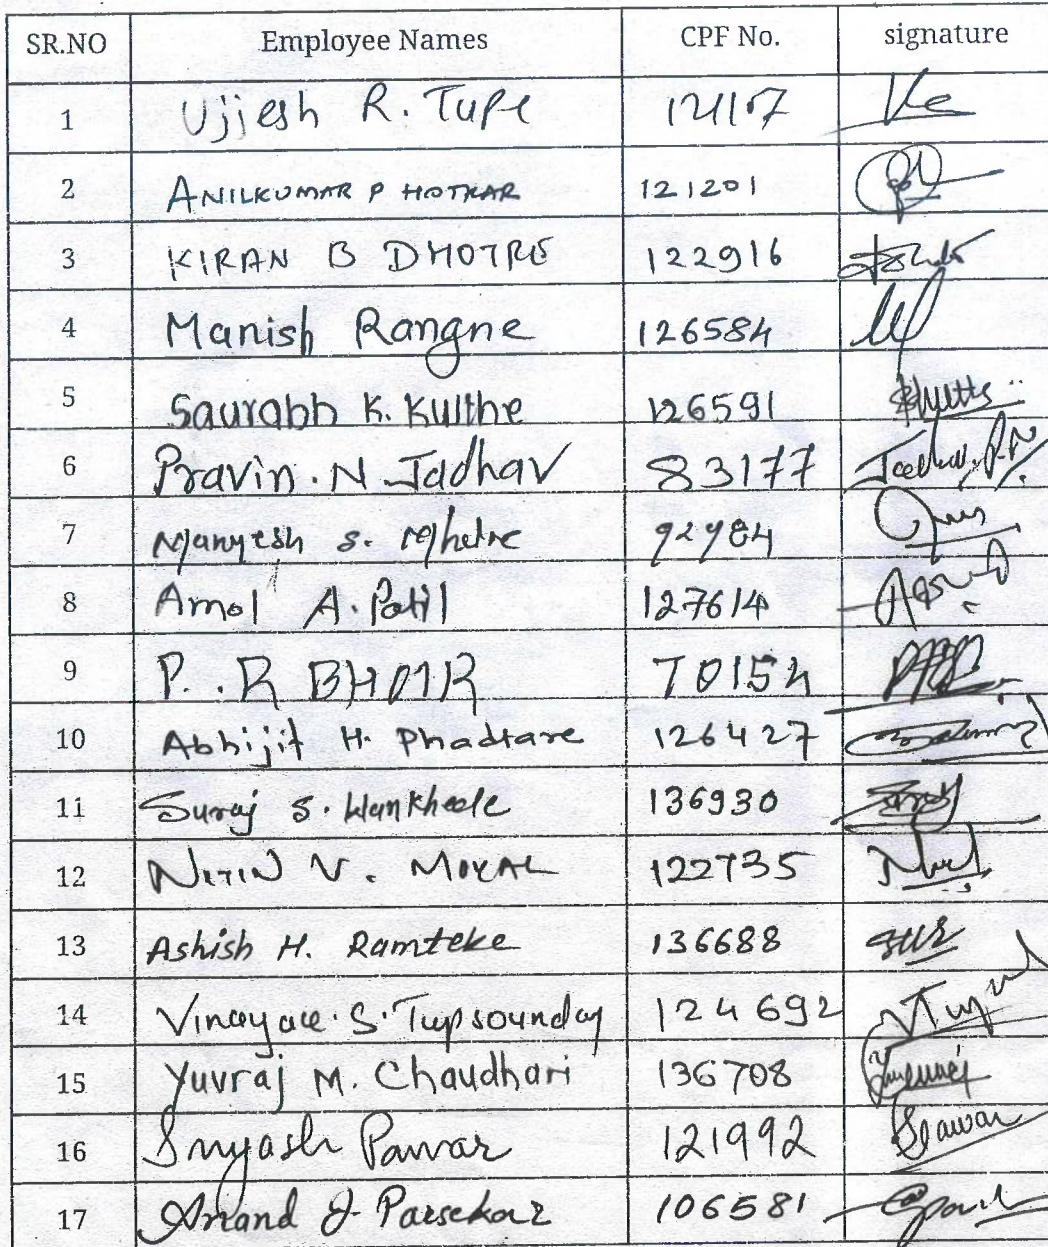 SR.NO Employee Names CPF No. signature
1 Ujjesh R. Tupe 121157
2 ANILKUMAR P HOTKAR 121201
3 KIRAN B DHOTRE 122916
4 Manish Rangne 126584
5 Saurabh K. Kulthe 126591
6 Pravin. N Jadhav 83177 Jadhav. P.N.
7 S. 92984
8 Amol A. Patil 127614
9 P. R BHOIR 70154
10 Abhijit H. Phadtare 126427
11 Suraj S. Wankhede 136930
12 NITIN V. MOKAL 122735
13 Ashish H. Ramteke 136688
14 Vinayak S. Tupsounday 124692
15 Yuvraj M. Chaudhari 136708
16 Suyash Pawar 121992 Pawar
17 Anand J. Parsekar 106581